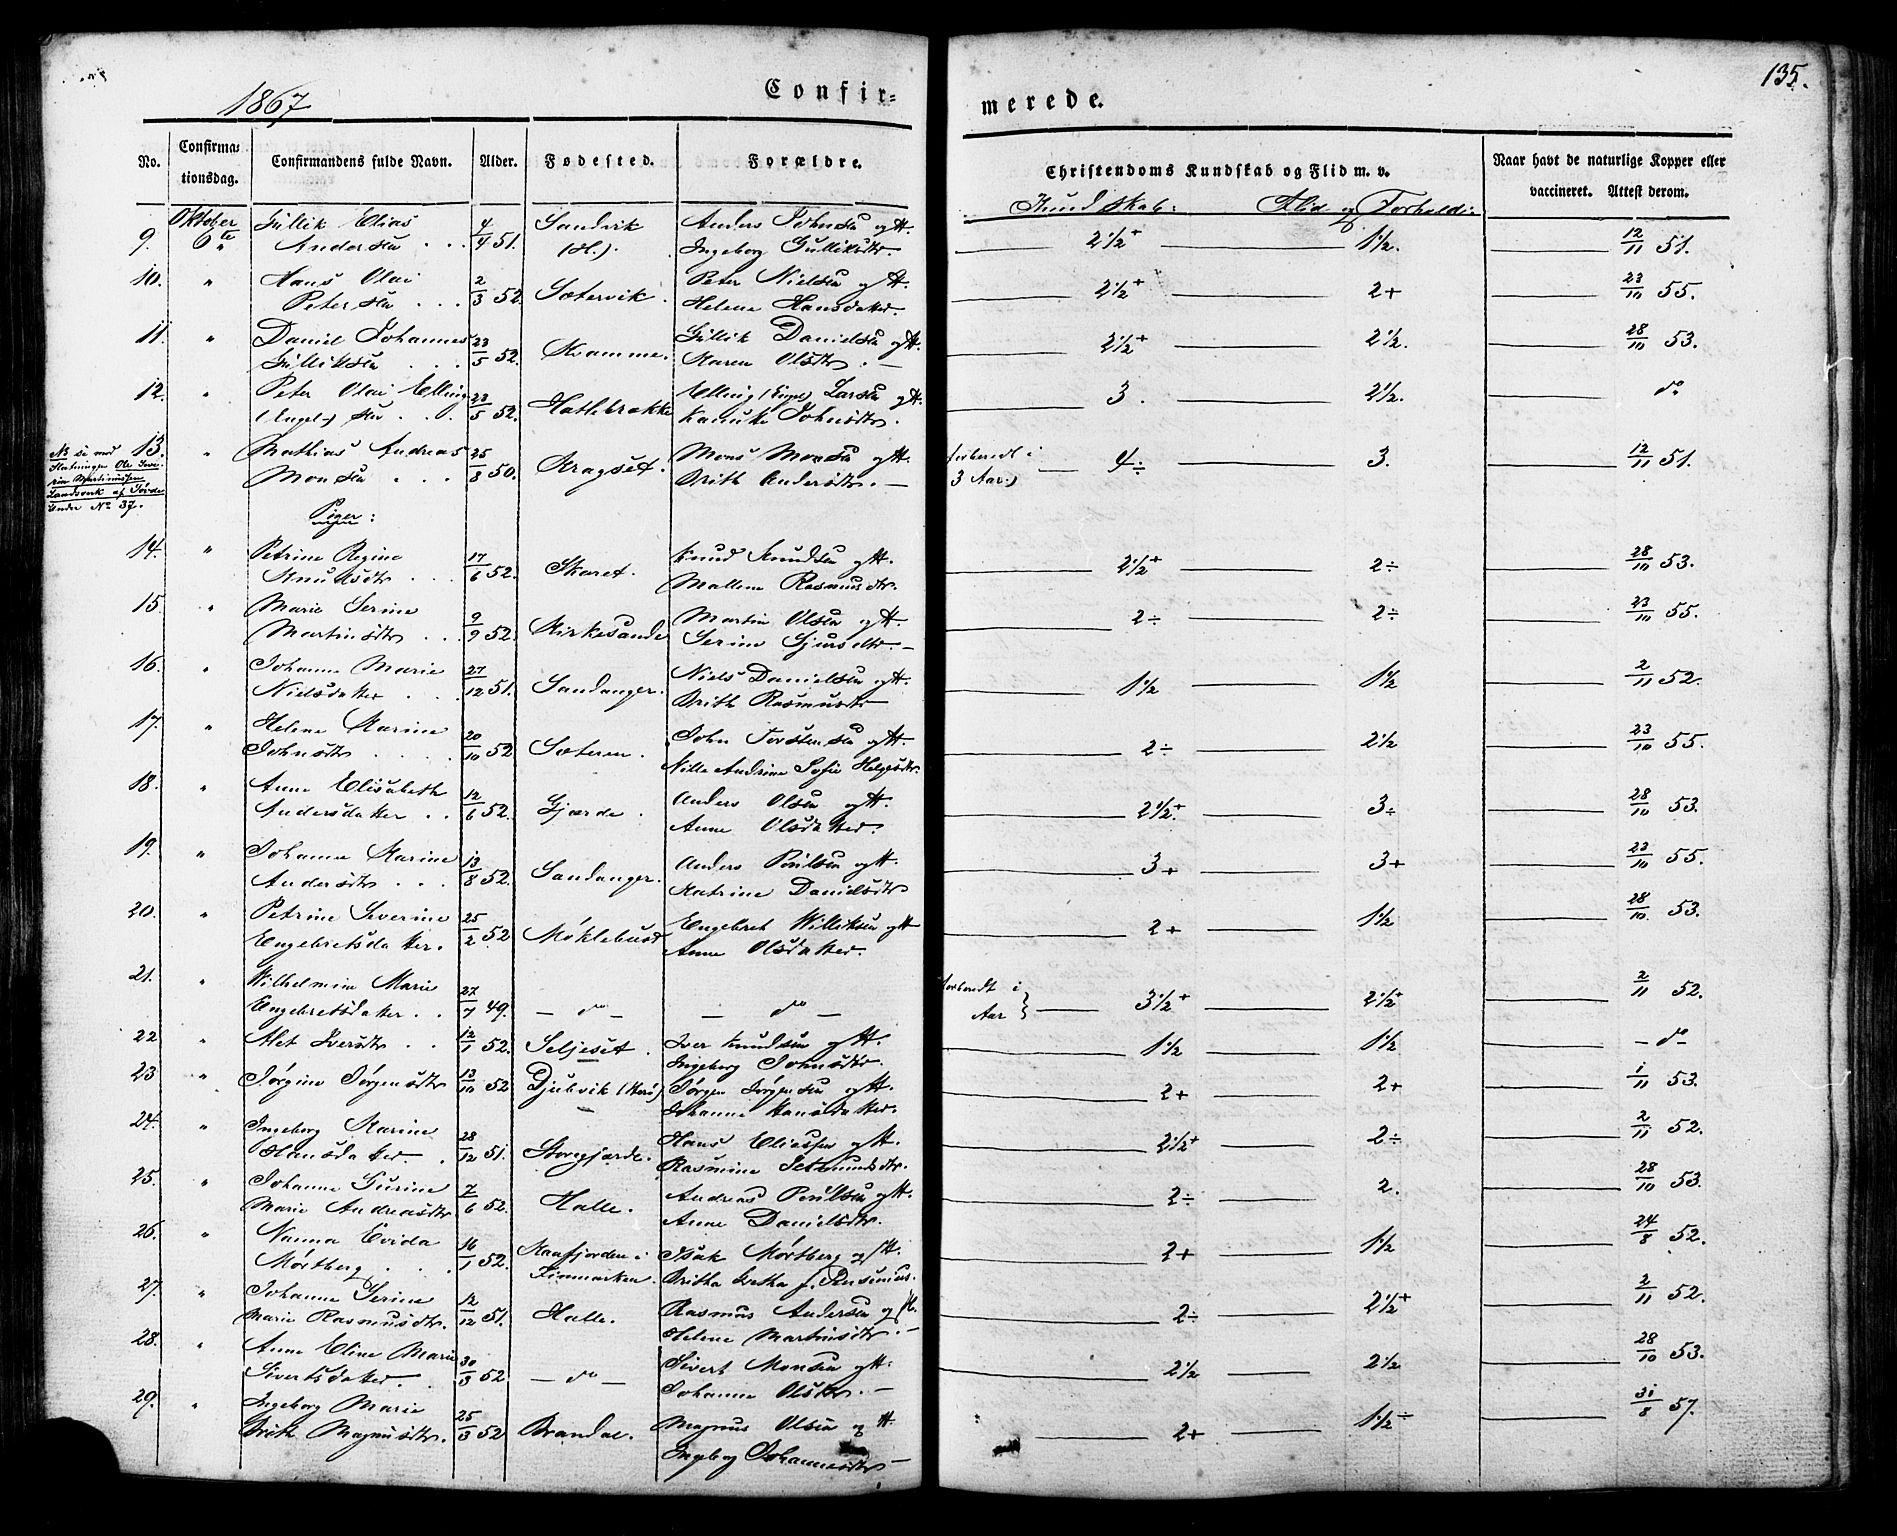 1867
Confir-
merede.
135.
No.
Confirma-
tionsdag.
Confirmandens fulde Navn.
Alder.
Fødested.
Forældre.
Christendoms Kundskab og Flid m. v.
Kundskab: Flid og Forhold:
Naar havt de naturlige Kopper eller
vaccineret. Attest derom.
Oktober
9. 6te Gullik Elias
Andersen 4/4 51. Sandvik (H.). Anders Johnsen og H.
Ingeborg Gulliksdtr. 2 1/2+ 1 1/2. 12/11 51.
10. " Hans Olai
Petersen 2/3 52. Sætervik. Peter Nielsen og H.
Helene Hansdatter. 2 1/2+ 2+ 23/10 55.
11. " Daniel Johannes
Gulliksen 23/5 52. Kvamme. Gullik Danielsen og H.
Karen Olsdtr. 2 1/2+ 2 1/2. 28/10 53.
12. " Peter Olai Elling
(Engel) sen 23/5 52. Hatlebrække Elling (Engel) Larsen og H.
Johnsdtr. 3. 2 1/2. do
13. " Mathias Andreas
Monsen 25/8 50. Kragset. Mons Monsen og H.
Brith Andersdtr. forberedt i
3 Aar.) 4÷ 3. 12/11 51.
NB se med
Slutningen Ole Seve-
rin Martinussen
Landsverk af Førde
under No 37.
Piger:
14. " Petrine Regine
Knudsdtr 17/6 52. Skaret. Knud Knudsen og H.
Mallene Rasmusdtr. 2 1/2+ 2÷ 28/10 53.
15. " Marie Serine
Martinsdtr 9/9 52. Kirkesande Martin Olsen og H.
Serine Sjursdtr. 2÷ 2÷ 23/10 55.
16. " Johanne Marie
Nielsdatter 27/12 51. Sandanger. Niels Danielsen og H.
Brith Rasmusdtr 1 1/2 1 1/2 2/11 52.
17. " Helene Karine
Johnsdtr 20/10 52 Sæteren. John Torstensen og H.
Nille Andrine Sofie Helgesdtr. 2÷ 2 1/2 23/10 55.
18. " Anne Elisabeth
Andersdatter 12/6 52. Gjærde. Anders Olsen og H.
Anne Olsdatter. 2 1/2+ 3÷ 28/10 53.
19. " Johanne Karine
Andersdtr 13/8 52. Sandanger. Anders Poulsen og H.
Katrine Danielsdtr 3+ 3+ 23/10 55.
20. " Petrine Severine
Engebretsdatter. 25/2 52 Møklebust Engebret Williksen og H
Anne Olsdatter. 2+ 1 1/2 28/10 53.
21. " Wilhelmine Marie
Engebretsdatter 27/7 49. — do — — do — forberedt i
Aar } 3 1/2+ 2 1/2+ 2/11 52.
22 " Alet Iversdtr 12/1 52. Seljeset. Iver Knudsen og H.
Ingeborg Johnsdtr. 1 1/2 1 1/2 - do -
23 " Jørgine Jørgensdtr 13/10 52 Djubvik Jørgen Jørgensen og H.
Johanne Hansdatter. 2+ 2+ 1/11 53.
24. " Ingeborg Karine
Hansdatter 28/12 51. Storegjærde. Hans Eliassen og H.
Rasmine Setmundsdtr. 2 1/2+ 2÷ 2/11 52.
25. " Johanne Gurine
Marie Andreasdtr 7/6 52. Halle. Andreas Poulsen og H.
Anne Danielsdtr. 2÷ 2. 28/10 53.
26. " Nanna Evida
Mørtberg 16/1 52. Kaafjorden i
Finmarken. Isak Mørtberg og H.
Britha Gretha f. 2+ 1 1/2 24/8 52.
27. " Johanne Serine
Marie Rasmusdtr. 12/12 51. Halle. Rasmus Andersen og H.
Helene Martinsdtr. 2÷ 2 1/2+ 2/11 52.
28. " Anne Eline Marie
Sivertsdatter. 30/3 52 — do — Sivert Monsen og H.
Johanne Olsdtr. 2 1/2 2 1/2 28/10 53.
29. " Ingeborg Marie
Brith Magnusdtr. 25/3 52 Brandal. Magnus Olsen og H.
Ingeborg Johannesdtr 2+ 1 1/2÷ 31/8 57.